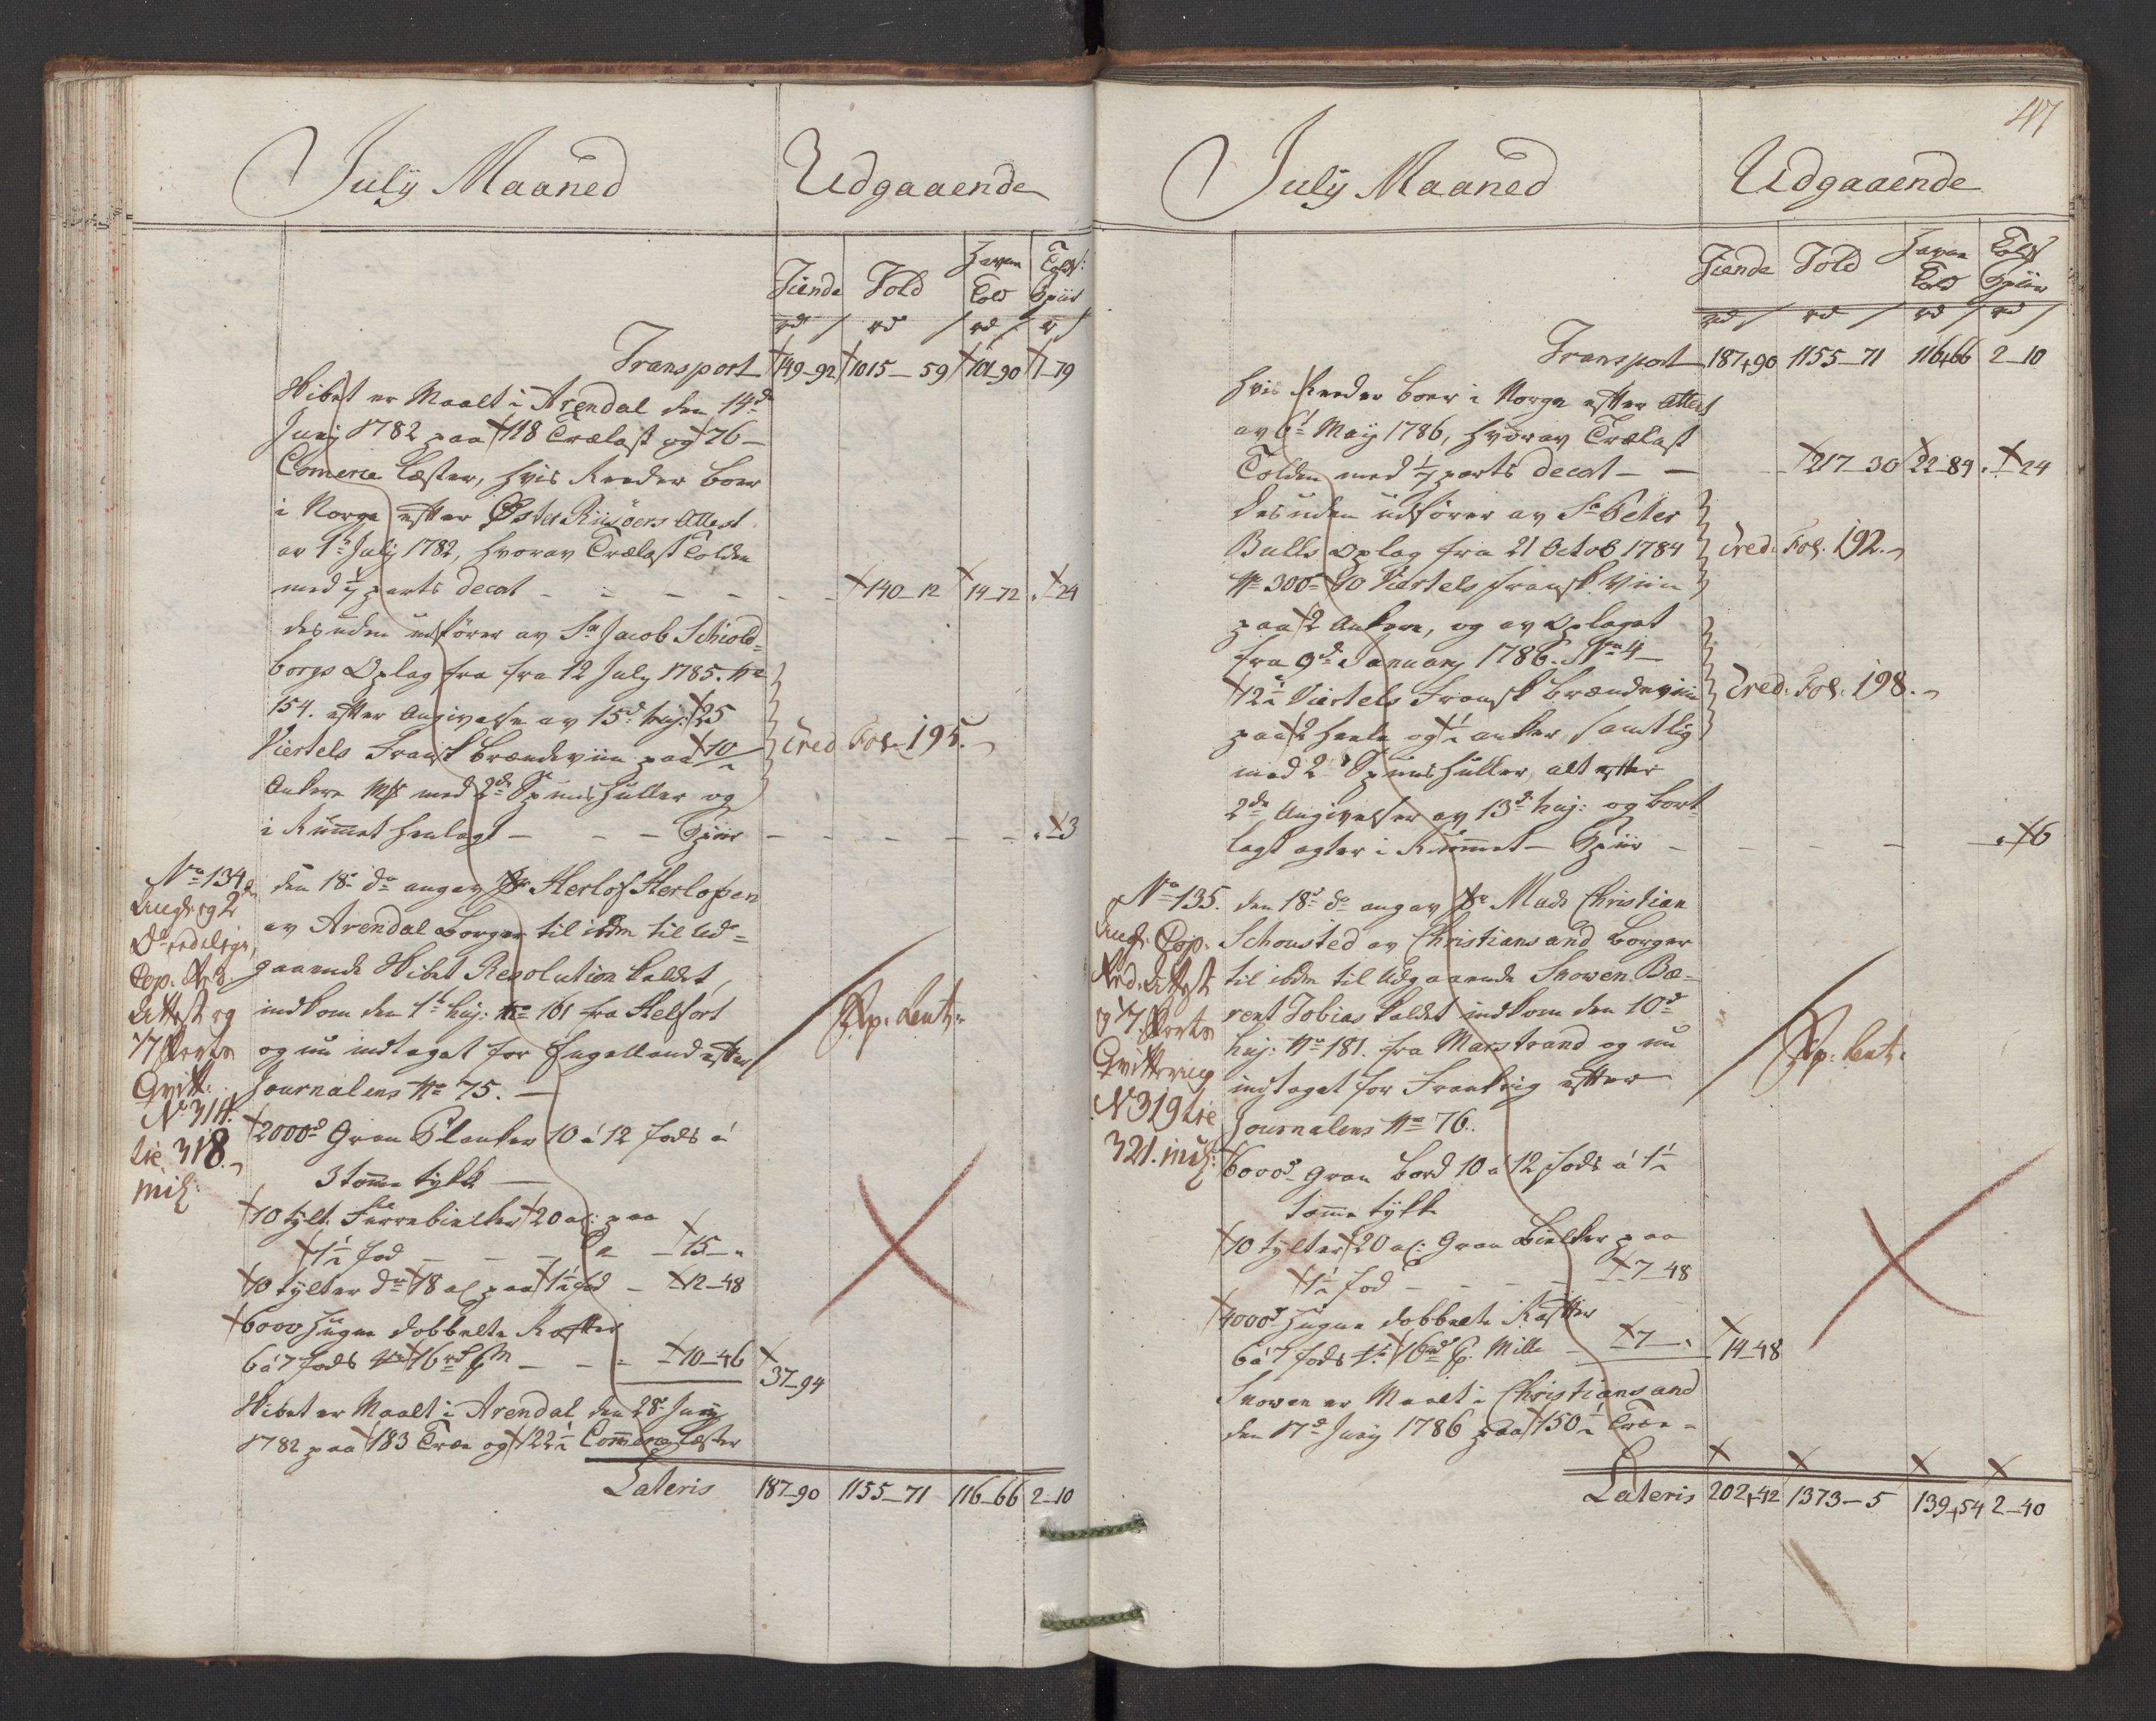 July Maaned
Udgaaende
Tiende Told Haven Told Told: Spiir
rd / rd / rd / r /
Transport 149-92 1015-59 101-90 1-79
Vibet er Maalt i Arendal den 14de
Junj 1782 paa 118 Trælast og 76
Comerce Læster, hvis Reeder boer
i Norge efter Øster Riisöers Attest
av 1te July 1782, hvorav Trælast Tolden
med 1/7 parts decat - - - - 140-12 14-72 "-24
desuden udfører av Sr Jacob Schiold=
borgs Oplag fra fra 12 July 1785. No
154. efter Angivelse av 15de huj: 25
Viertels Fransk Brændeviin paa 10 Cred. Fol. 195.
Ankere med 2de Spunshuller og
i Rummet henlagt - - - Spiir - - - - - "-3
No 134
Angr og 2de
Cop.
Attest og
1/7 Parts
Qvitt:
No 314.
tie 318.
den 18de do angav Sr Herlof Herlofsen
av Arendal Borger til ibdm til Ud=
gaaende Vibet Resolution kaldet,
indkom den 1te huj: No 161 fra Helsort
og nu indtaget for Engelland efter
Journalens No 75.
2000de Gran Planker 10 á 12 fods á
3 tomme tykk
10 tylt. Furrebielker 20 al: paa
1 1/2 fod - - - - 15-"
10 tylter do 18 al paa 1 1/2 fod - 12-48
6000 Hugne dobbelte Rafter
6 á 7 fods 16 rd - - - 10-46 37-94
Vibet er Maalt i Arendal den 28de Junij
1782 paa 183 Træe og 122 1/2 Commerce Læster
Lateris 187-90 1155-71 116-66 2-10
47
July Maaned
Udgaaende
Tiende Told Haven Told Told Spiir
rd / rd / rd / rd /
Transport 187-90 1155-71 116-66 2-10
hvis Reeder boer i Norge efter Attest
av 6te May 1786, hvorav Trælast
Tolden med 1/7 parts decat - - 217-30 22-84 "-24
desuden udfører av Sr Peter
Bulls Oplag fra 21 Octob 1784 Cred. Fol. 192.
No 300 - 10 Viertels Fransk Viin
paa 2 Ankere, og av Oplaget
fra 9de January 1786. No 4
12 1/2 Viertels Fransk Brændeviin Cred. Fol. 198.
paa 2 heele og 1/2 anker, samtlig
med 2 Spunshuller, alt efter
2de Angivelser av 13de huj: og bort
lagt agter i Rummet - Spiir - - - - "-6
No 135.
Angr. Cop.
Red. Attest
og 1/7 Parts
Qvittering
No 319 tie
321.
den 18de do angav Sr Mads Christian
Schousted av Christiansand Borger
til ibdm til Udgaaende Snowen Bæ=
rent Tobias kaldet indkom den 10de
huj: No 181. fra Marstrand og nu
indtaget for Frankrig efter
Journalens No 76.
6000de Gran Bord 10 á 12 fods á 1 1/2
tomme tykk
10 tylter 20 al: Gran Bielker paa
1 1/2 fod - - - - 7-48
4000de Hugne dobbelte Rafter
6 á 7 fods Mille - 7-" 14-48
Snowen er Maalt i Christiansand
den 17de Junij 1786 paa 150 1/2 Træe=
Lateris 202-42 1373-5 139-54 2-40